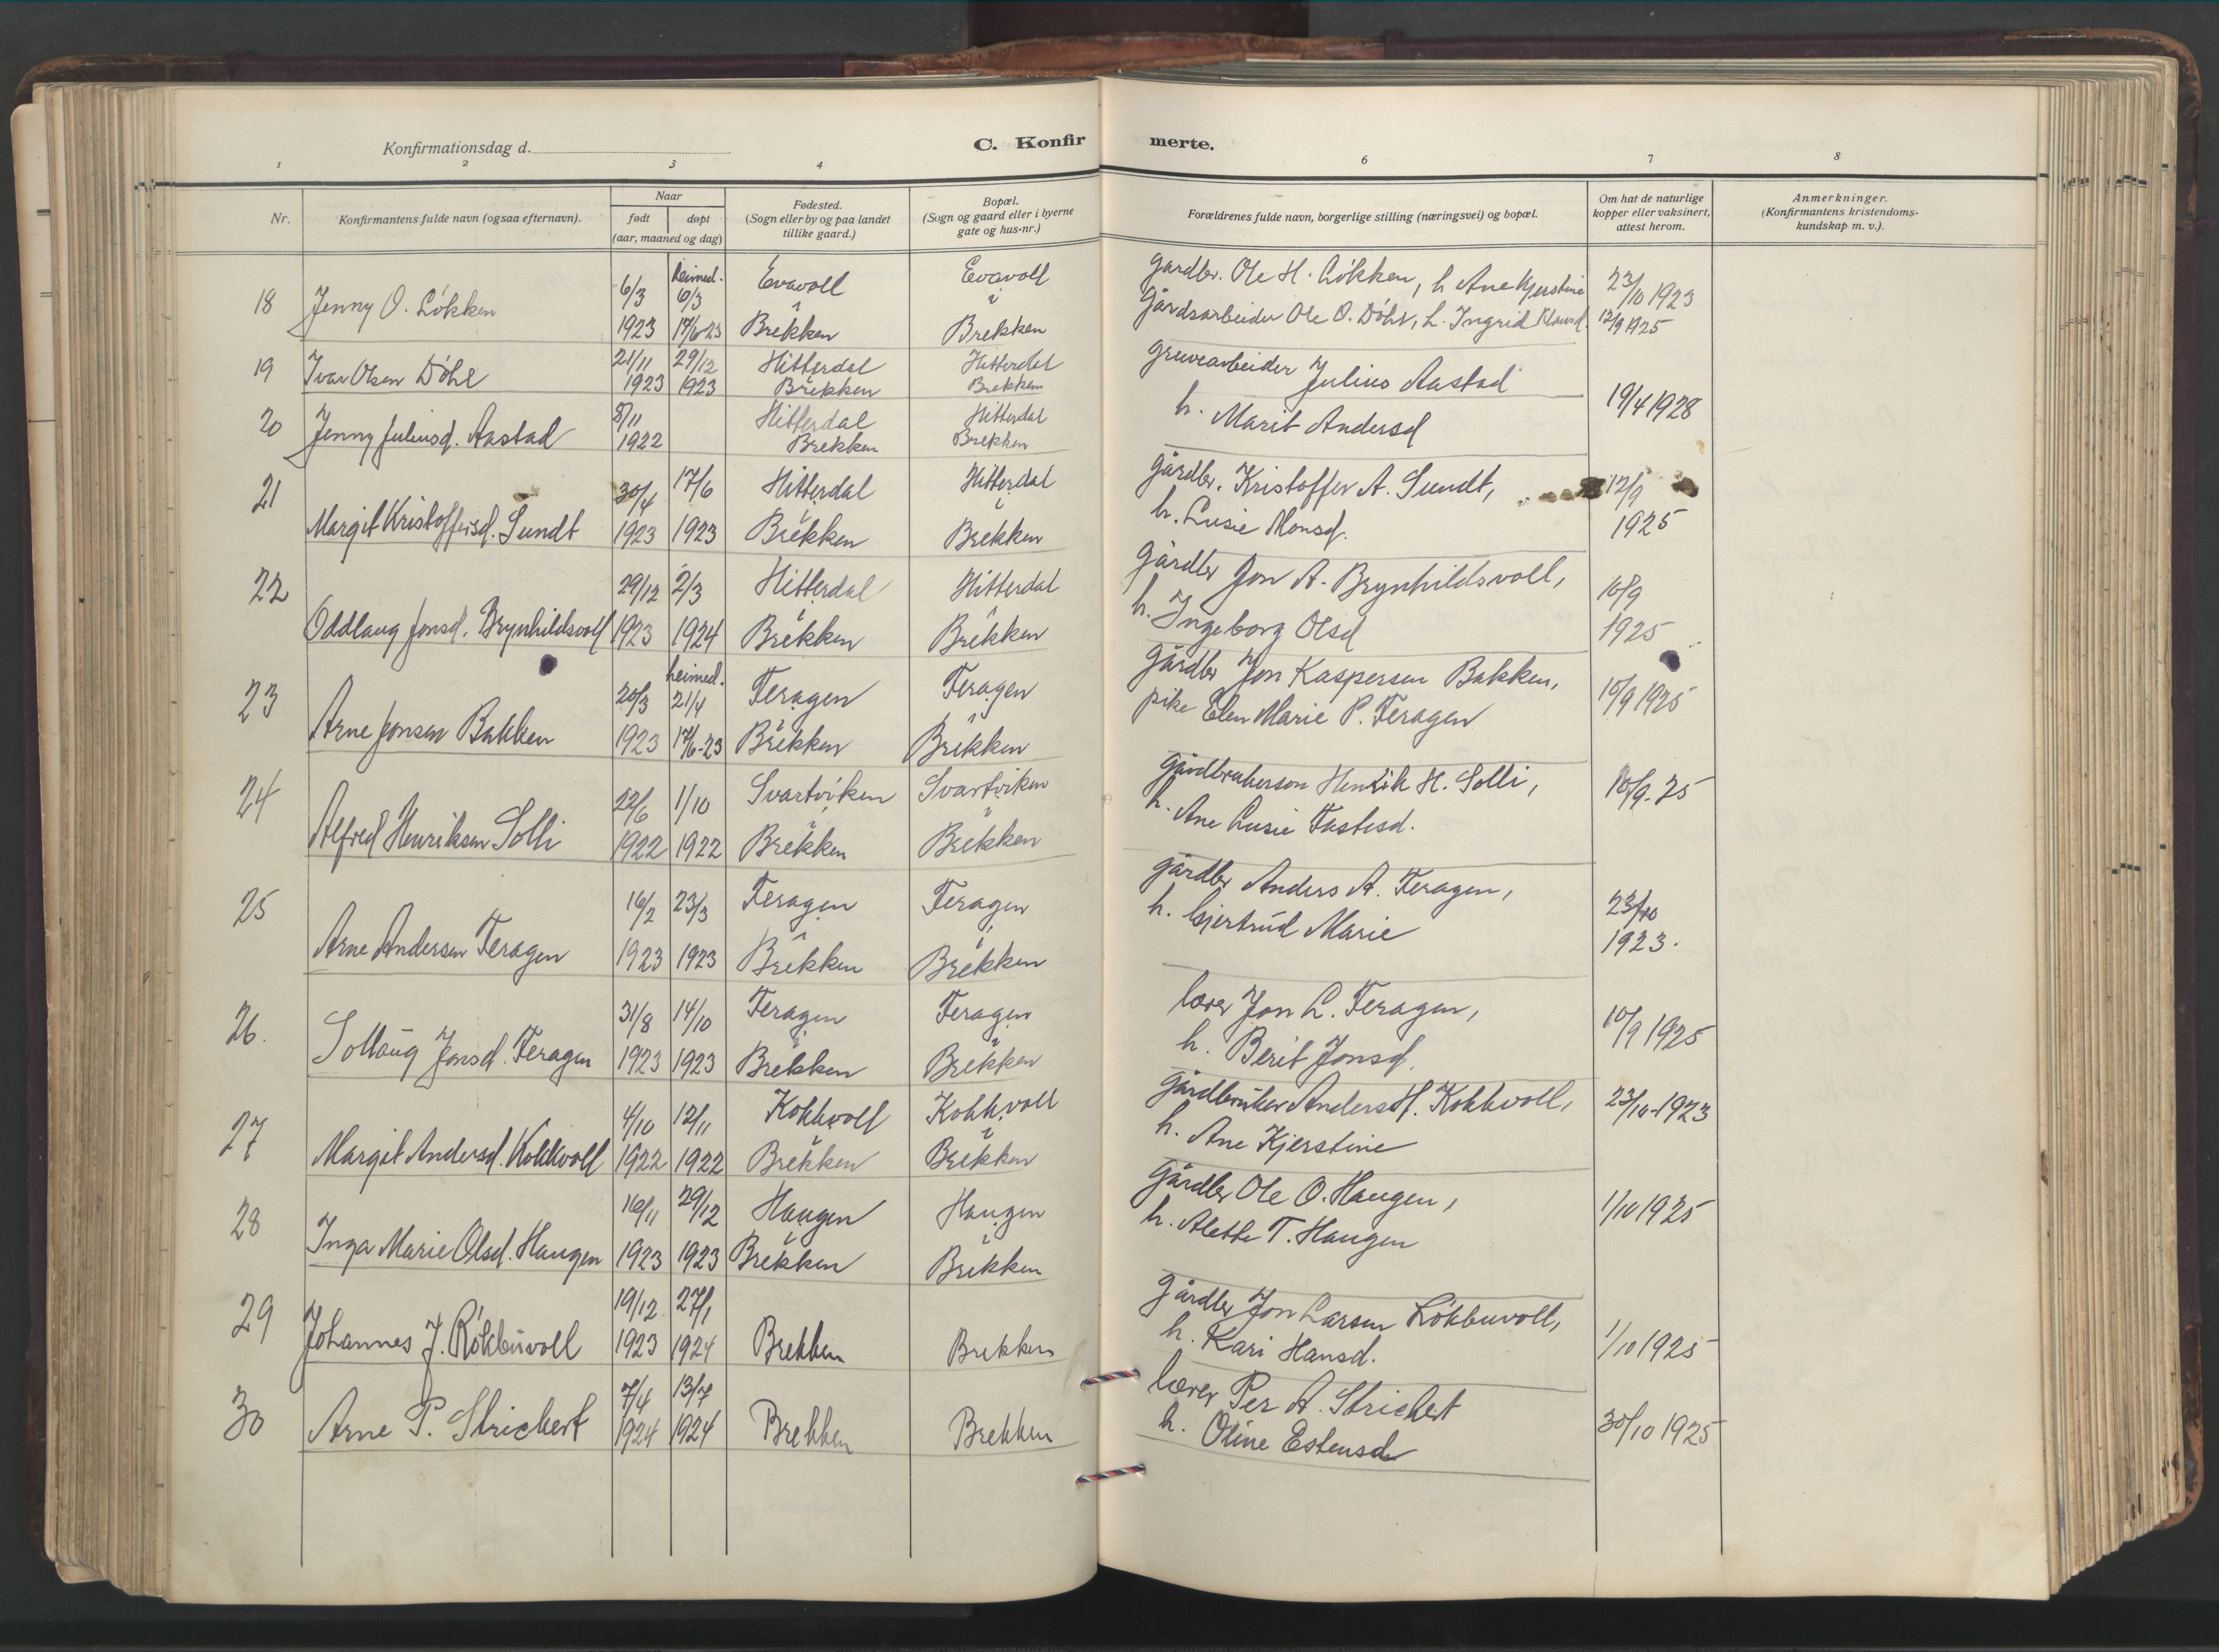 Konfirmationsdag d.
C. Konfir
merte.
1 2 3 4 6 7 8
Nr.
Konfirmantens fulde navn (ogsaa efternavn).
Naar
født
døpt
(aar, maaned og dag)
Fødested.
(Sogn eller by og paa landet
tillike gaard.)
Bopæl.
(Sogn og gaard eller i byerne
gate og hus-nr.)
Forældrenes fulde navn, borgerlige stilling (næringsvei) og bopæl.
Om hat de naturlige
kopper eller vaksinert,
attest herom.
Anmerkninger.
(Konfirmantens kristendoms-
kundskap m. v.).
18 Jenny O. Løkken 6/3 1923 heimed. 6/3 17/6-23 Evavoll i Brekken Evavoll i Brekken gardbr. Ole H. Løkken, h Ane Kjerstine 23/10 1923
19 Ivar Olsen Døhl 21/11 1923 29/12 1923 Hitterdal Brekken Hitterdal Brekken Gårdsarbeider Ole O. Døhl, h. Ingrid 12/9 1925
20 Jenny Juliusd. Aastad 8/11 1922 Hitterdal Brekken Hitterdal Brekken gruvearbeider Julius Aastad
h. Marit Andersd 19/4 1928
21 Margit Kristoffersd. Sundt 30/4 1923 17/6 1923 Hitterdal i Brekken Hitterdal i Brekken gårdbr. Kristoffer A. Sundt,
h. Lusie Monsd. 12/9 1925
22 Oddlaug Jonsd. Brynhildsvoll 29/12 1923 2/3 1924 Hitterdal i Brekken Hitterdal i Brekken Gårdbr Jon A. Brynhildsvoll,
h. Ingeborg Olsd 10/9 1925
23 Arne Jonsen Bakken 20/3 1923 heimed. 21/4 17/6-23 Feragen i Brekken Feragen i Brekken Gårdbr Jon Kaspersen Bakken,
pike Elen Marie P. Feragen 10/9 1925
24 Alfred Henriksen Solli 22/6 1922 1/10 1922 Svartviken i Brekken Svartviken i Brekken Gårdbrukerson Henrik H. Solli,
h. Ane Lusie Fastesd. 10/9-25
25 Arne Andersen Feragen 16/2 1923 23/3 1923 Feragen i Brekken Feragen i Brekken gårdbr Anders A. Feragen,
h. Gjertrud Marie 23/10 1923.
26. Sollaug Jonsd. Feragen 31/8 1923 14/10 1923 Feragen i Brekken Feragen i Brekken lærer Jon L. Feragen,
h. Berit Jonsd. 10/9 1925
27 Margit Andersd. Kokkvoll 4/10 1922 12/11 1922 Kokkvoll i Brekken Kokkvoll i Brekken gårdbruker Anders H. Kokkvoll,
h. Ane Kjerstine 23/10-1923
28 Inga Marie Olsd. Haugen 16/11 1923 29/12 1923 Haugen i Brekken Haugen i Brekken Gårdbr Ole O. Haugen,
h. Alette T. Haugen 1/10 1925
29 Johannes J. Røkbuvoll 19/12 1923 27/1 1924 Brekken Brekken Gårdbr Jon Larsen Løkbuvoll,
h. Kari Hansd. 1/10 1925
30 Arne P. Strickert 7/4 1924 13/7 1924 Brekken Brekken lærer Per A. Strickert
h. Oline Estensd 30/10 1925